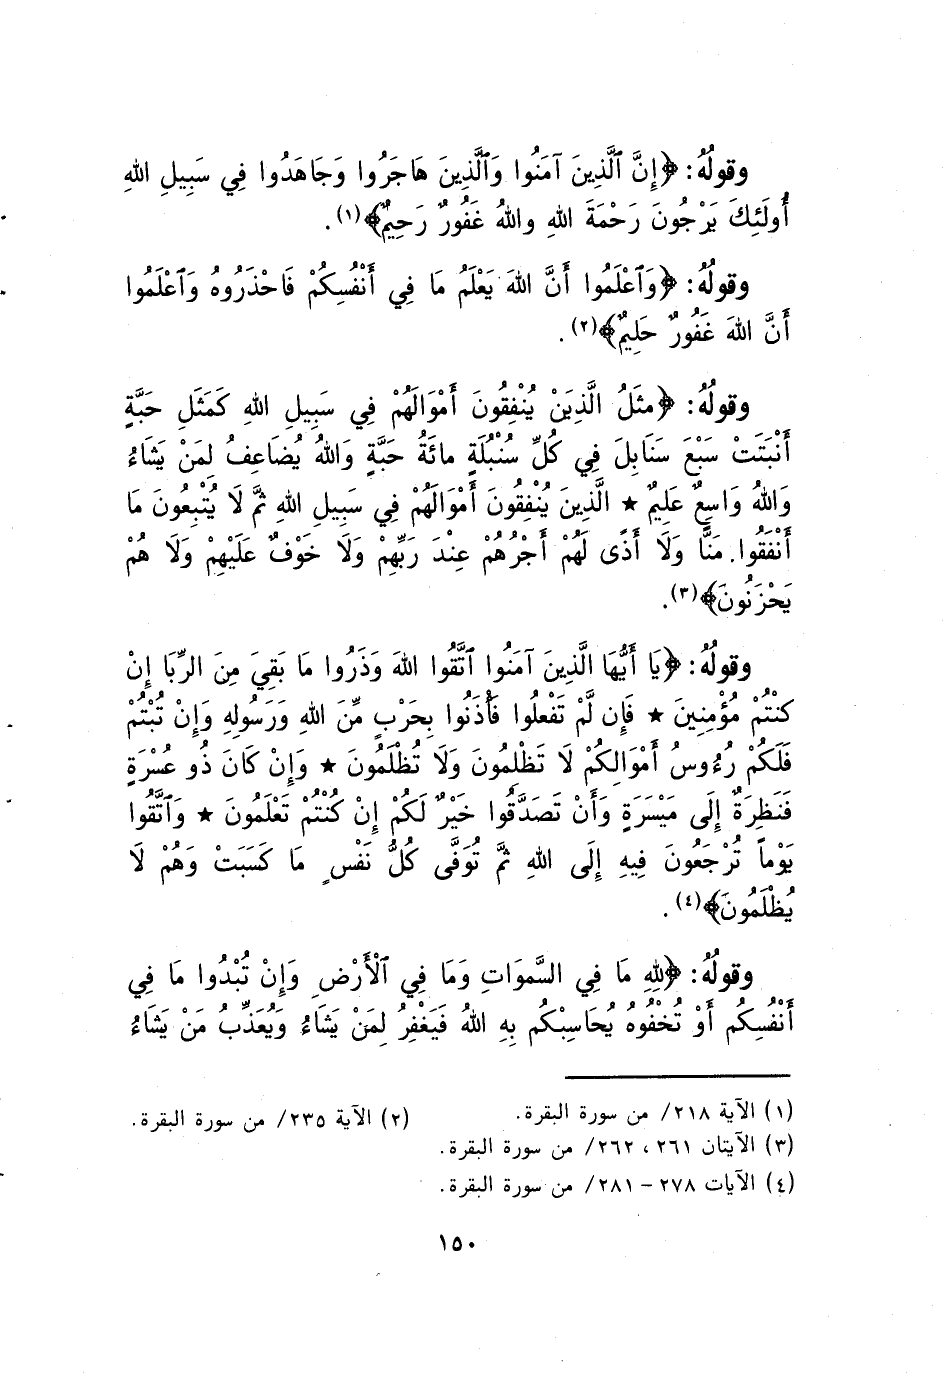 وقولُهُ: ﴿إِنَّ ٱلَّذِينَ آمَنُوا وَٱلَّذِينَ هَاجَرُوا وَجَاهَدُوا فِي سَبِيلِ اللهِ
أُولَئِكَ يَرْجُونَ رَحْمَةَ اللهِ واللهُ غَفُورٌ رَحِيمٌ﴾(١).
وقولُهُ: ﴿وَٱعْلَمُوا أَنَّ اللهَ يَعْلَمُ مَا فِي أَنْفُسِكُمْ فَاحْذَرُوهُ وَٱعْلَمُوا
أَنَّ اللهَ غَفُورٌ حَلِيمٌ﴾(٢).
وقولُهُ: ﴿مثَلُ الَّذِيَنْ يُنْفِقُونَ أَمْوَالَهُمْ فِي سَبِيلِ اللهِ كَمَثَلِ حَبَّةٍ
أَنْبَتَتْ سَبْعَ سَنَابِلَ فِي كُلِّ سُنْبُلَةٍ مائَةُ حَبَّةٍ وَاللهُ يُضَاعِفُ لمَنْ يَشَاءُ
وَاللهُ وَاسِعٌ عَلِيمٌ ★ الَّذِينَ يُنْفِقُونَ أَمْوَالَهُمْ فِي سَبِيلِ اللهِ ثمَّ لَا يُتْبِعُونَ مَا
أَنْفَقُوا. مَنًّا وَلَا أَذًى لَهُمْ أَجْرُهُمْ عِنْدَ رَبِّهِمْ وَلَا خَوْفٌ عَلَيْهِمْ وَلَا هُمْ
يَحْزَنُونَ﴾(٣).
وقولُهُ: ﴿يَا أَيُّهَا الَّذِينَ آمَنُوا ٱتَّقُوا اللهَ وَذَرُوا مَا بَقِيَ مِنَ الرِّبَا إِنْ
كنْتُمْ مُؤْمِنِينَ ★ فَإِن لَّمْ تَفْعلُوا فَأْذَنُوا بِحَرْبٍ مِّنَ اللهِ وَرَسُولِهِ وَإِنْ تُبْتُمْ
فَلَكُمْ رُءُوسُ أَمْوَالِكُمْ لَا تَظْلِمُونَ وَلَا تُظْلَمُونَ ★ وَإِنْ كَانَ ذُو عُسْرَةٍ
فَنَظِرَةٌ إِلَى مَيْسَرَةٍ وَأَنْ تَصَدَّقُوا خَيْرٌ لَكُمْ إِنْ كُنْتُمْ تَعْلَمُونَ ★ وَٱتَّقُوا
يَوْماً تُرْجَعُونَ فِيهِ إِلَى اللهِ ثمَّ تُوَفَّى كُلُّ نَفْسٍ مَا كَسَبَتْ وَهُمْ لَا
يُظْلَمُونَ﴾(٤).
وقولُهُ: ﴿للهِ مَا فِي السَّموَاتِ وَمَا فِي ٱلْأَرْضِ وَإِنْ تُبْدُوا مَا فِي
أَنْفُسِكُم أَوْ تُخْفُوهُ يُحَاسِبْكُم بِهِ اللهُ فَيَغْفِرُ لِمَنْ يَشَاءُ وَيُعَذِّبُ مَنْ يَشَاءُ
(١) الآية ٢١٨/ من سورة البقرة. (٢) الآية ٢٣٥/ من سورة البقرة.
(٣) الآيتان ٢٦١، ٢٦٢/ من سورة البقرة.
(٤) الآيات ٢٧٨ – ٢٨١/ من سورة البقرة.
١٥٠